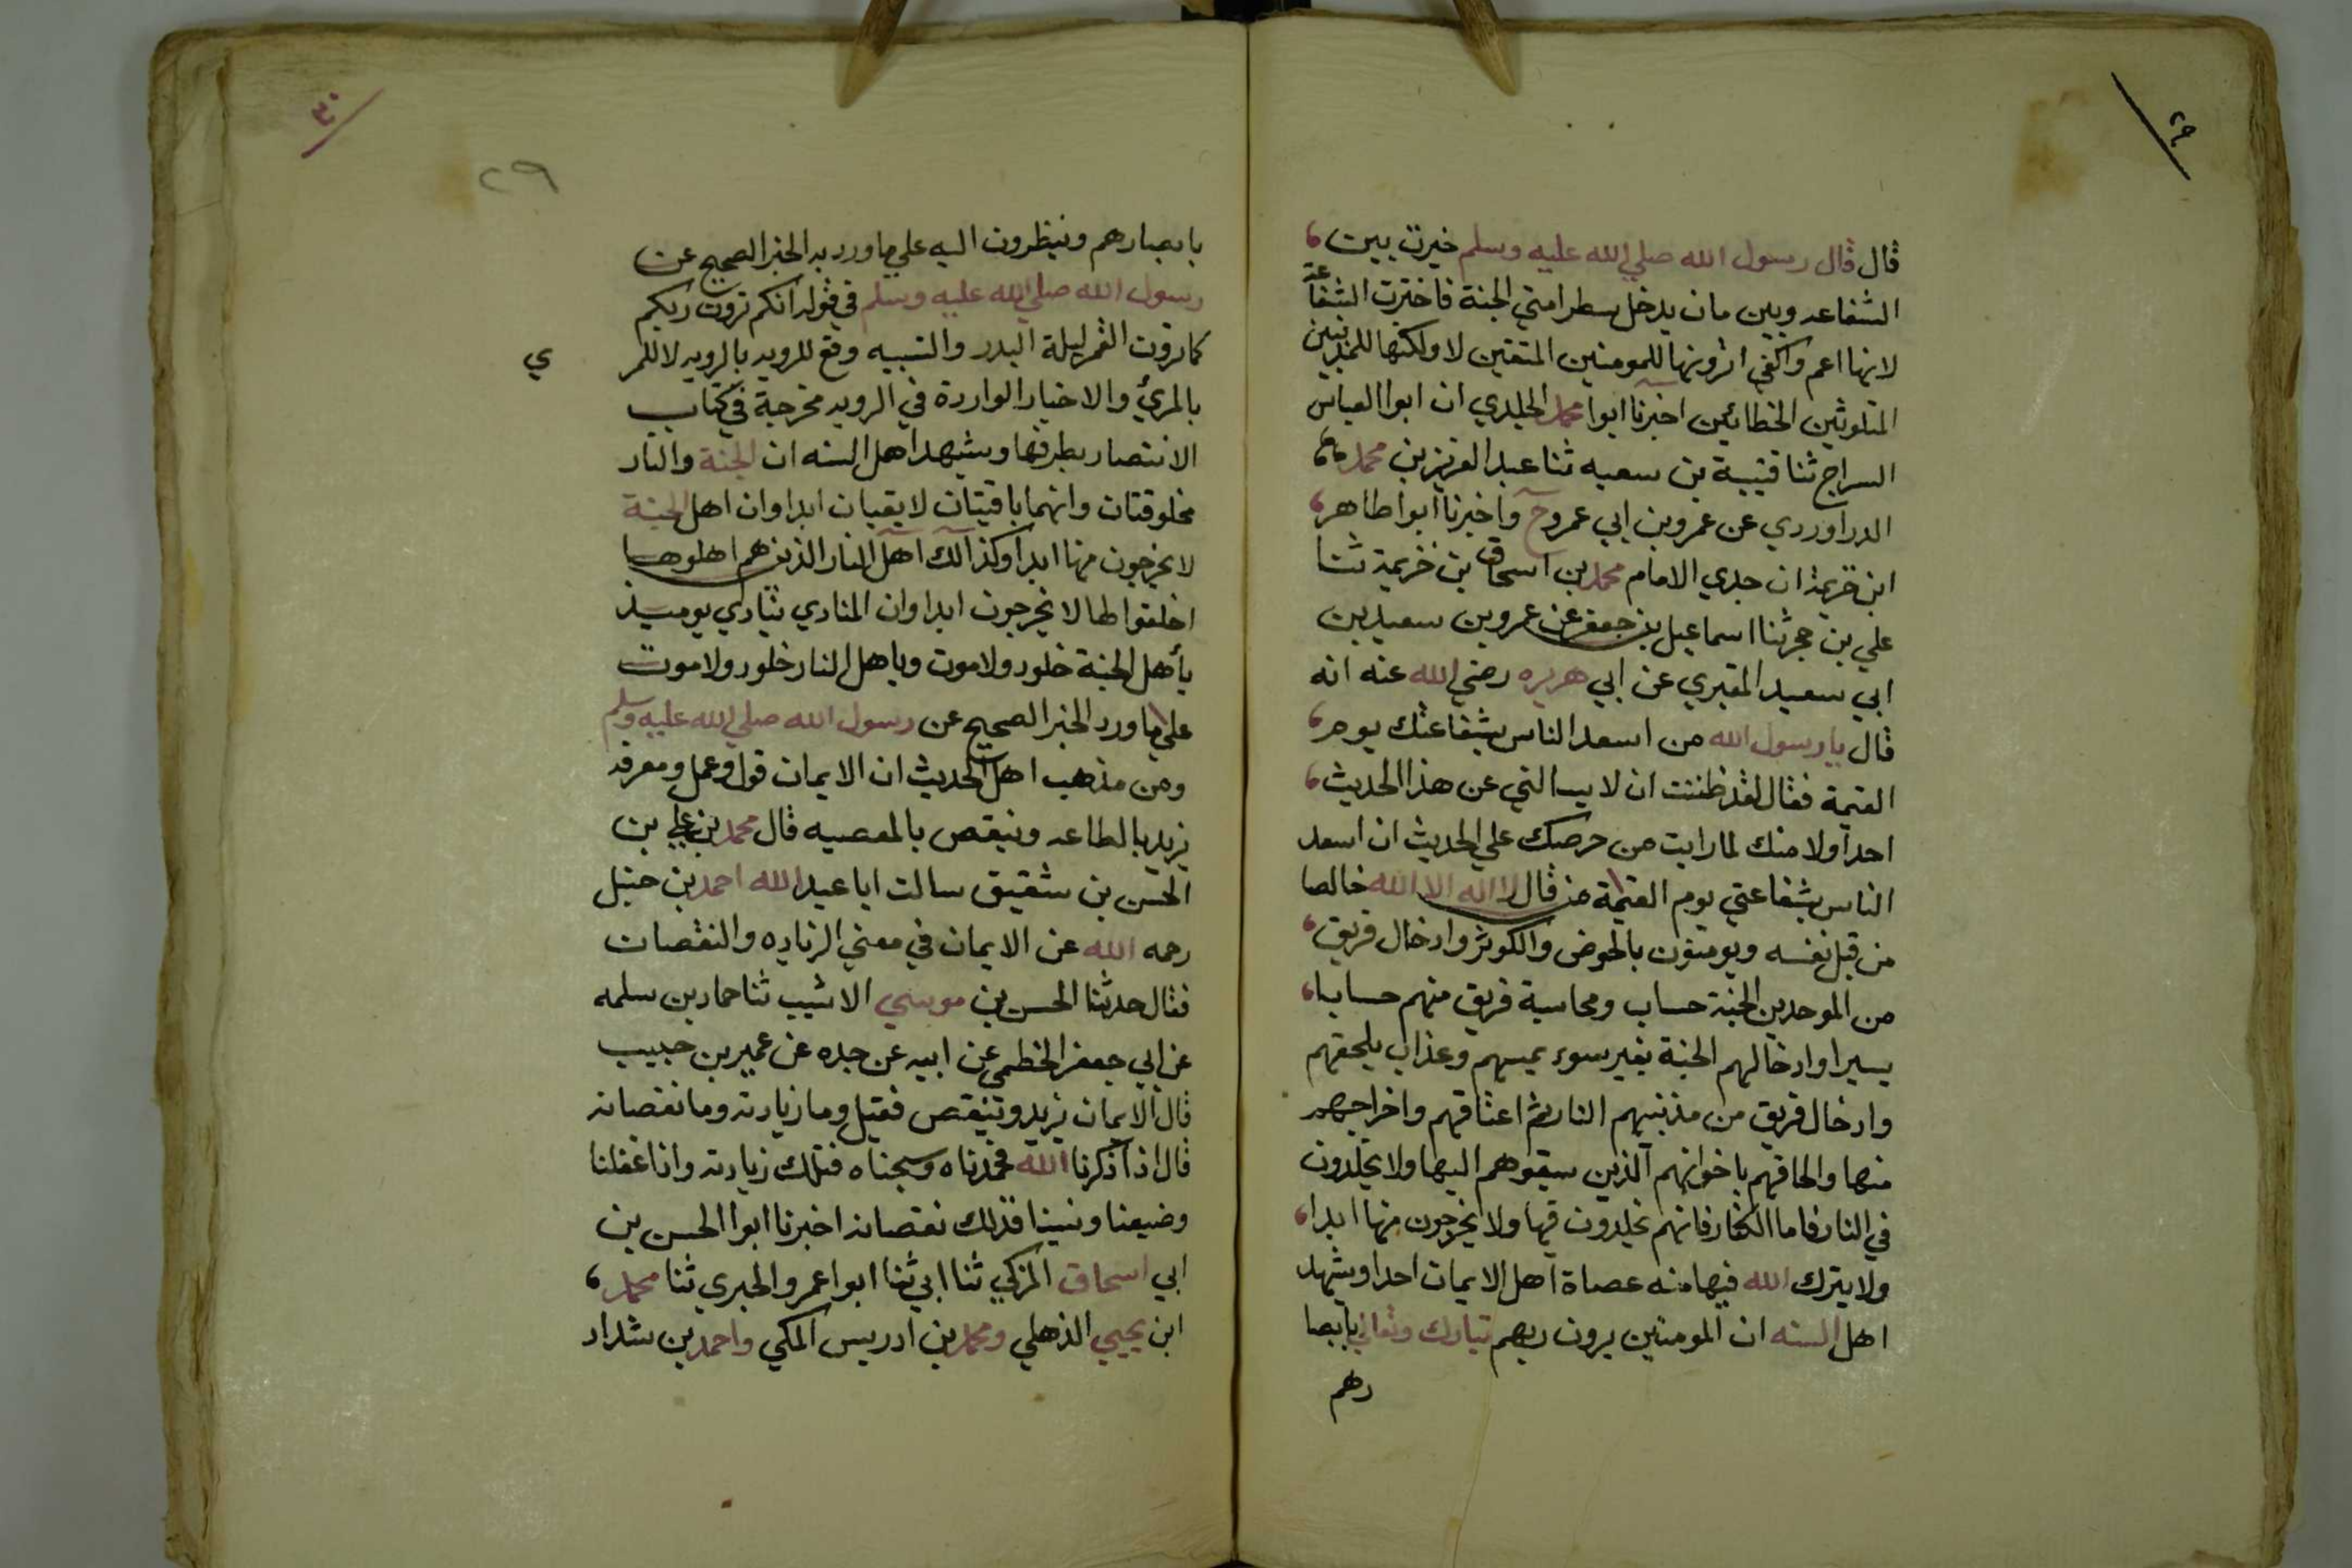 ٢٩
قال قال رسول الله صلي الله عليه وسلم خيرت بين
الشفاعه وبين مان يدخل سطر امتي الجنة فاخترت الشفاعة
لانها اعم واكفي اترونها للمومنين المتقين لا ولكنها للمذنبين
المتلوثين الخطائين اخبرنا ابوا محمد الخلدي ان ابوا العباس
السراج ثنا قتيبة بن سعيه ثنا عبد العزيز بن محمد
الدراوردي عن عمرو بن ابي عمرو ح واخبرنا ابوا طاهر
ابن خزيمة ان جدي الامام محمد بن اسحاق بن خزيمة ثنا
علي بن حجر ثنا اسماعيل بن جعفر عن عمرو بن سعيد بن
ابي سعيد المقبري عن ابي هريره رضي الله عنه انه
قال يا رسول الله من اسعد الناس بشفاعتك يوم
القيمة فقال لقد ظننت ان لا يسالني عن هذا الحديث
احدا ولا منك لما رايت من حرصك علي الحديث ان اسعد
الناس بشفاعتي يوم القيمة من قال لا اله الا الله خالصا
من قبل نفسه ويومنون بالحوض والكوثر وادخال فريق
من الموحدين الجنة حساب ومحاسبة فريق منهم حسابا
يسيرا وادخالهم الجنة بغير سوء يمسهم وعذاب يلحقهم
وادخال فريق من مذنبيهم النار ثم اعتاقهم واخراجهم
منها والحاقهم باخوانهم الذين سبقوهم اليها ولا يخلدون
في النار فاما الكفار فانهم يخلدون فيها ولا يخرجون منها ابدا
ولا يترك الله فيها منه عصاة اهل الايمان احدا ويشهد
اهل السنه ان المومنين يرون ربهم تبارك وتعالي بابصا
رهم
٣٠
٢٩
بابصارهم وينظرون اليه علي ما ورد به الخبر الصحيح عن
رسول الله صلي الله عليه وسلم في قوله انكم ترون ربكم
كما ترون القمر ليلة البدر والتشبيه وقع للرويه بالرويه لا للمر
ي
بالمرئ والاخبار الواردة في الرويه مخرجة في كتاب
الانتصار بطرقها ويشهد اهل السنه ان الجنة والنار
مخلوقتان وانهما باقيتان لا يفنيان ابدا وان اهل الجنة
لا يخرجون منها ابدا وكذالك اهل النار الذين هم اهلوها
اخلقوا لها لا يخرجون ابدا وان المنادي ينادي يوميذ
يأهل الجنة خلود ولا موت وياهل النار خلود ولا موت
علي ما ورد الخبر الصحيح عن رسول الله صلي الله عليه وسلم
ومن مذهب اهل الحديث ان الايمان قول وعمل ومعرفه
يزيد بالطاعه وينقص بالمعصيه قال محمد بن علي بن
الحسن بن شقيق سالت ابا عبد الله احمد بن حنبل
رحمه الله عن الايمان في معني الزياده والنقصان
فقال حدثنا الحسن بن موسي الاشيب ثنا حماد بن سلمه
عن ابي جعفر الخطمي عن ابيه عن جده عن عمير بن حبيب
قال الايمان يزيد وينقص فقيل وما زيادته وما نقصانه
قال اذا ذكرنا الله فحمدناه وسبحناه فتلك زيادته واذا غفلنا
وضيعنا ونسينا فذلك نقصانه اخبرنا ابوا الحسن بن
ابي اسحاق المزكي ثنا ابي ثنا ابوا عمرو الحيري ثنا محمد
ابن يحيي الذهلي ومحمد بن ادريس المكي واحمد بن شداد